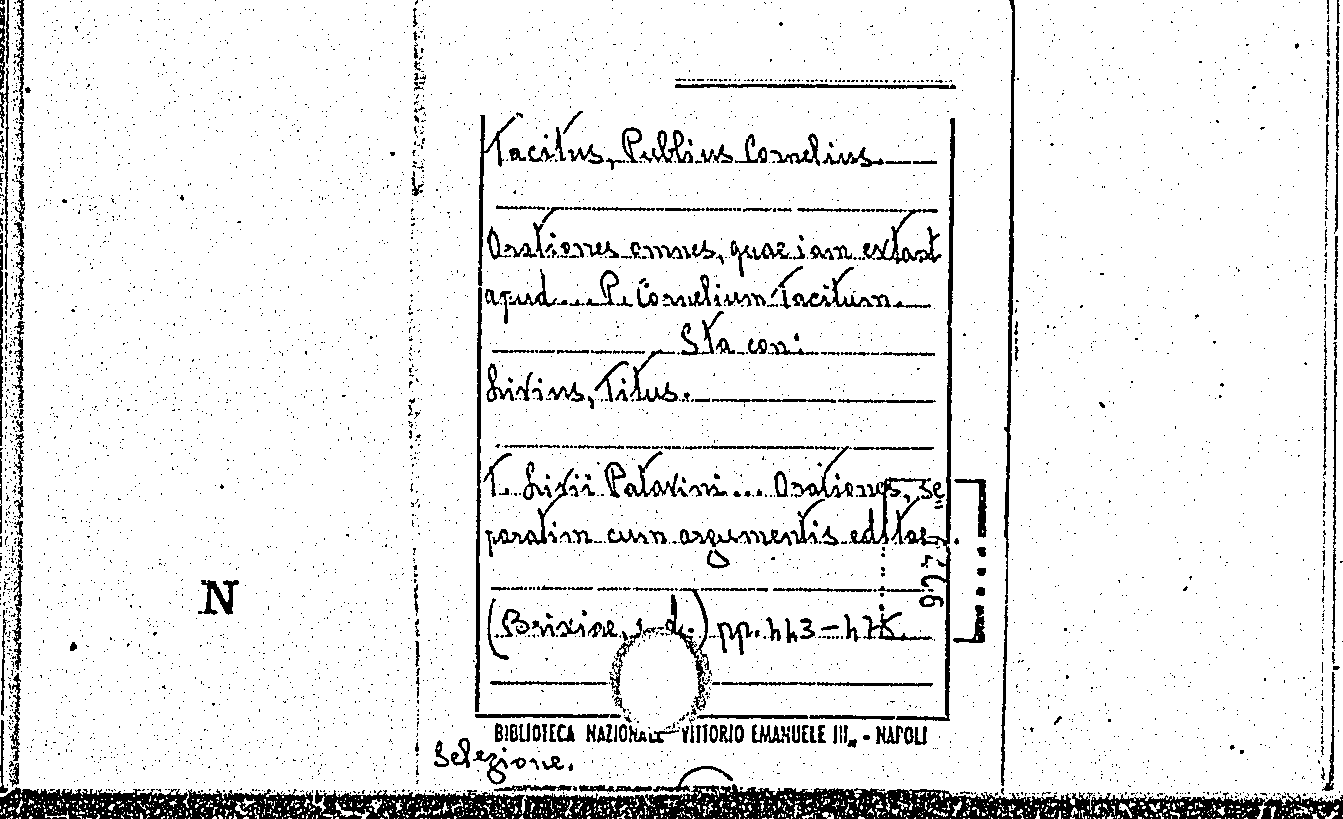 Tacitus, Publius Cornelius.
Orationes omnes, quae iam extant
apud... P. Cornelium Tacitum.
Sta con:
Livius, Titus.
T. Livii Patavini... Orationes, se
paratim cum argumentis editae.
(Brixiae, s. d.) pp. 443-475.
N
BIBLIOTECA NAZIONALE VITTORIO EMANUELE III. - NAPOLI
Selezione.